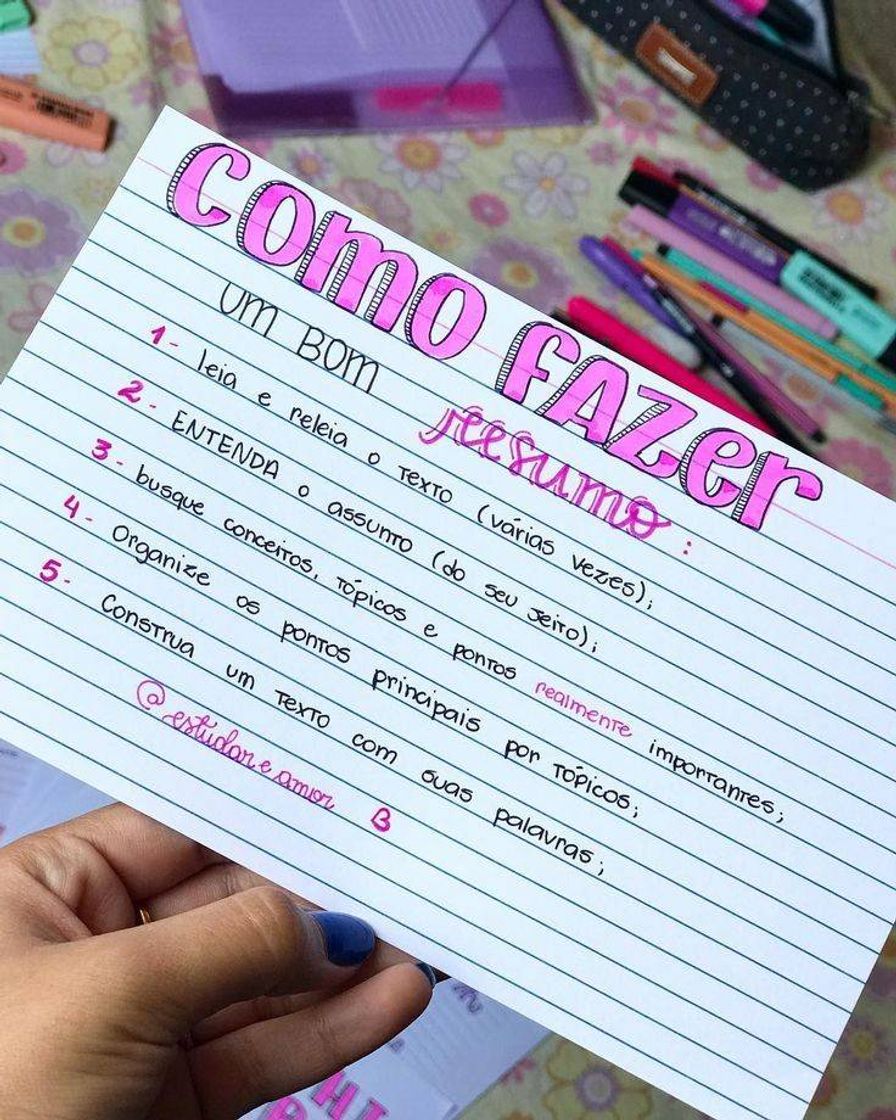 COMO FAZER
UM BOM resumo:
1- leia e releia o texto (várias vezes);
2- ENTENDA o assunto (do seu jeito);
3- busque conceitos, tópicos e pontos realmente importantes;
4- Organize os pontos principais por tópicos;
5- Construa um texto com suas palavras;
@estudareamor B